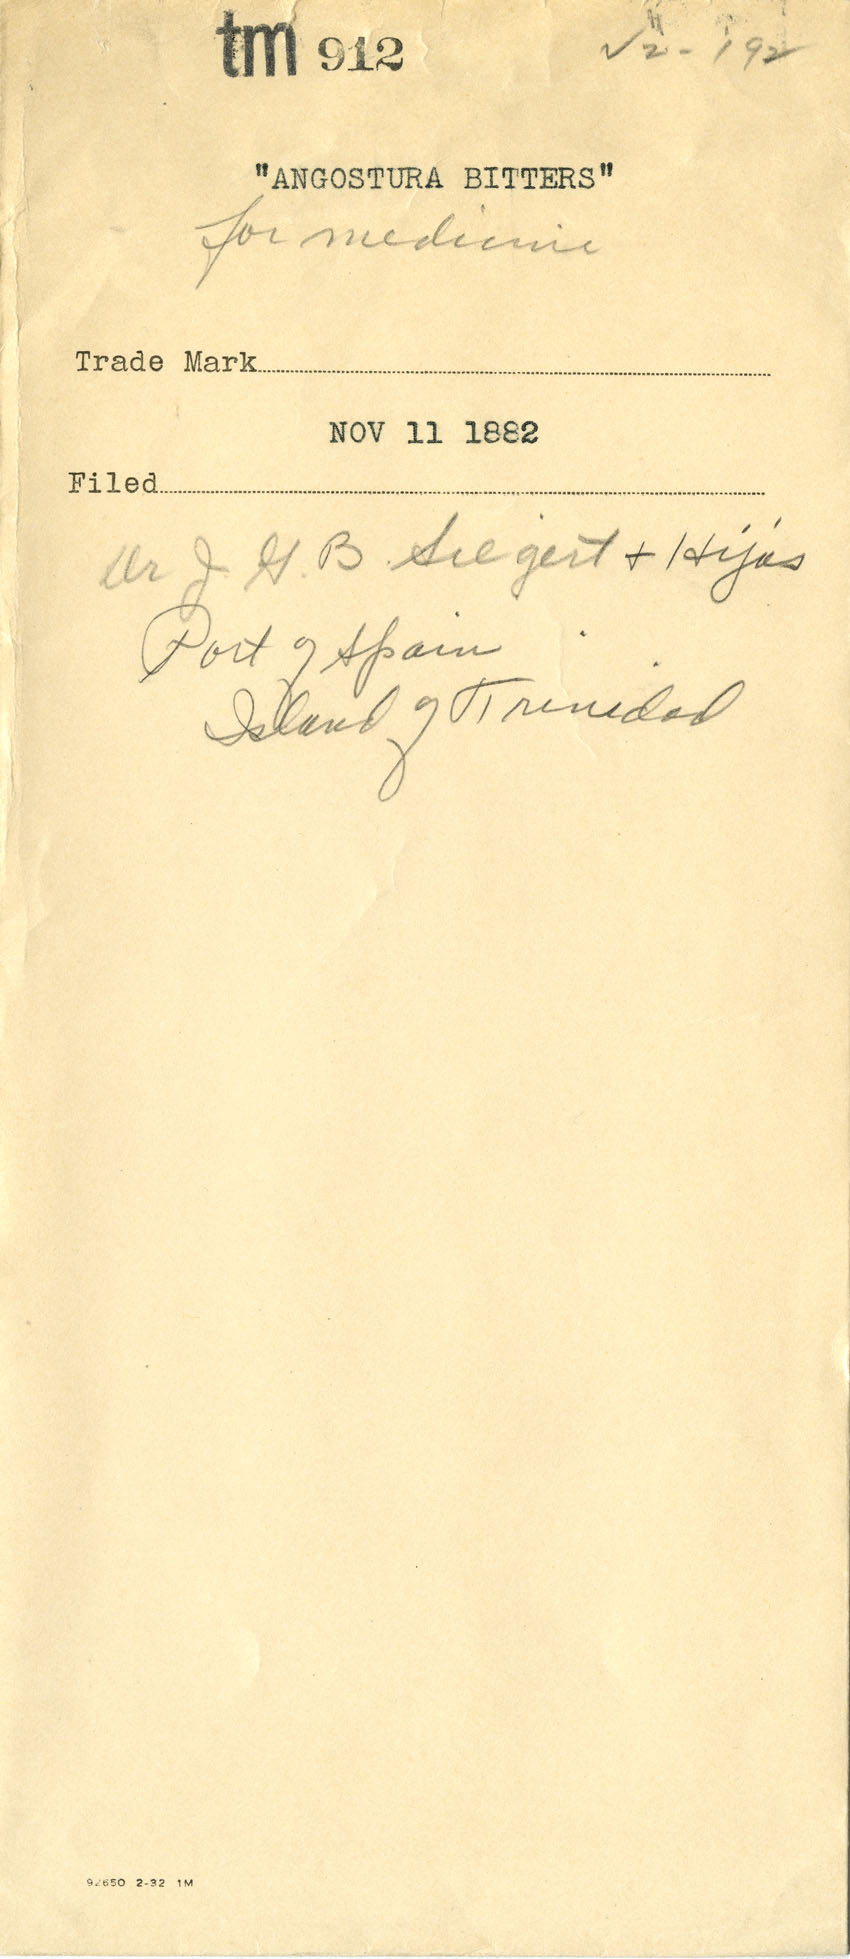 tm 912
√2-192
"ANGOSTURA BITTERS"
for medicine
Trade Mark
NOV 11 1882
Filed
Dr J. G. B. Siegert + Hijos
Port of Spain
Island of Trinidad
92650 2-32 1M